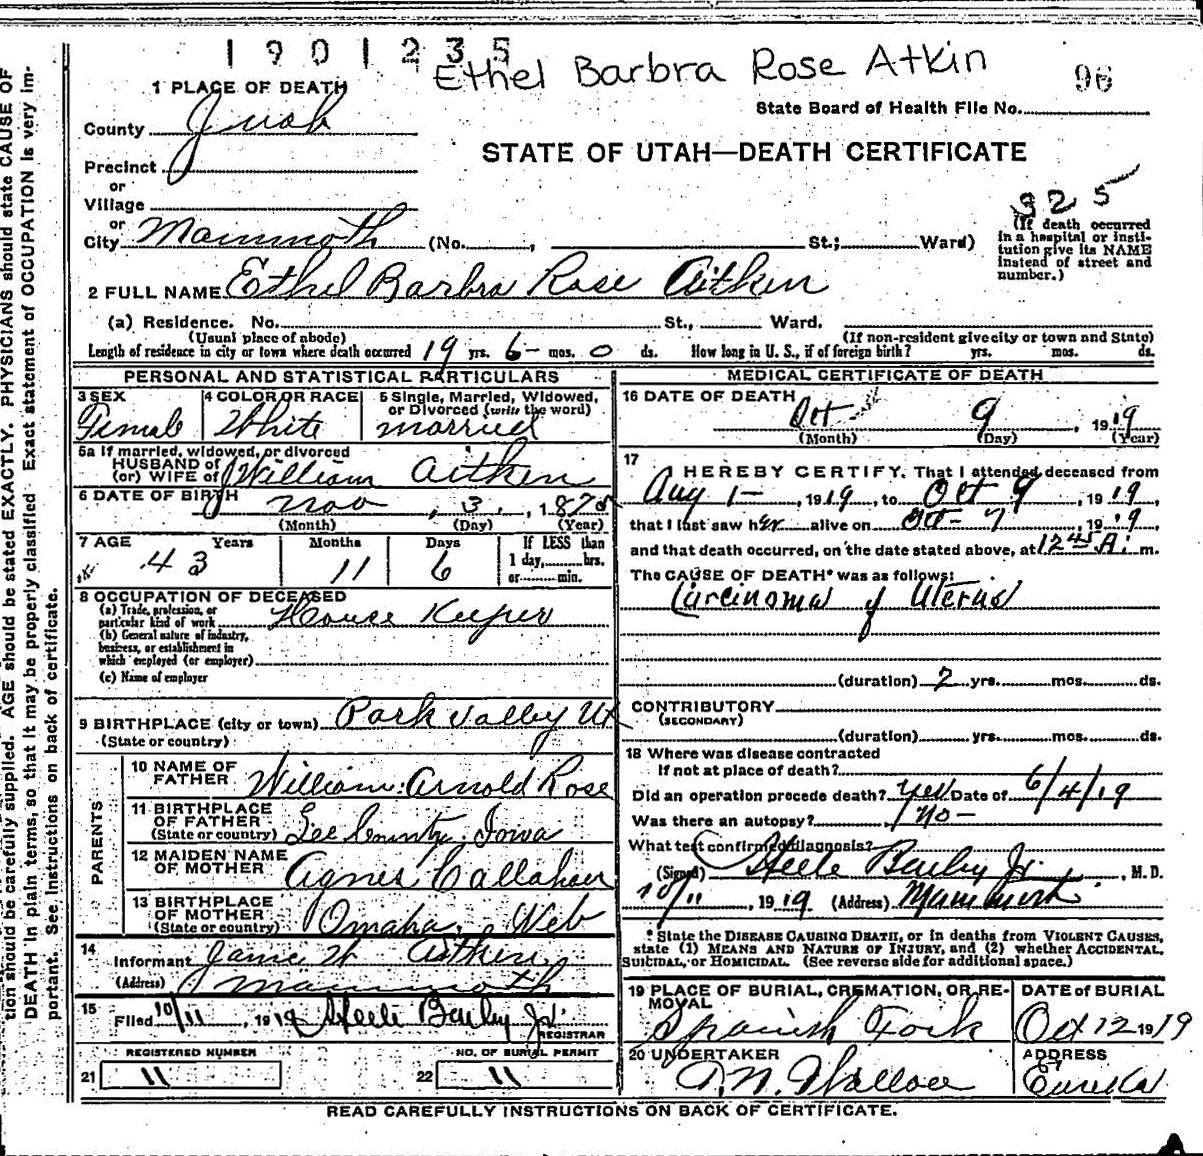 1901235
Ethel Barbra Rose Atkin
96
1 PLACE OF DEATH
State Board of Health File No.
County Juab
STATE OF UTAH—DEATH CERTIFICATE
Precinct
or
Village
325
or
City Mammoth (No. , St.; Ward)
(If death occurred
in a hospital or insti-
tution give its NAME
instead of street and
number.)
2 FULL NAME Ethel Barbra Rose Aitken
(a) Residence. No. St., Ward.
(Usual place of abode)
(If non-resident give city or town and State)
Length of residence in city or town where death occurred 19 yrs. 6 mos. 0 ds. How long in U. S., if of foreign birth? yrs. mos. ds.
PERSONAL AND STATISTICAL PARTICULARS
3 SEX
Female
4 COLOR OR RACE
White
5 Single, Married, Widowed,
or Divorced (write the word)
married
5a If married, widowed, or divorced
HUSBAND of
(or) WIFE of William Aitken
6 DATE OF BIRTH Nov , 3 , 1875
(Month) (Day) (Year)
7 AGE Years Months Days
43 11 6
If LESS than
1 day, hrs.
or min.
8 OCCUPATION OF DECEASED
(a) Trade, profession, or
particular kind of work House Keeper
(b) General nature of industry,
business, or establishment in
which employed (or employer)
(c) Name of employer
9 BIRTHPLACE (city or town) Park Valley Ut
(State or country)
PARENTS
10 NAME OF
FATHER William Arnold Rose
11 BIRTHPLACE
OF FATHER
(State or country) Lee County, Iowa
12 MAIDEN NAME
OF MOTHER Agnes Callahan
13 BIRTHPLACE
OF MOTHER
(State or country) Omaha, Neb
14
Informant James W Aitken
(Address) Mammoth
15
Filed 10/11 , 1919 Steele Bailey Jr.
REGISTRAR
REGISTERED NUMBER
21 11
NO. OF BURIAL PERMIT
22 11
MEDICAL CERTIFICATE OF DEATH
16 DATE OF DEATH
Oct 9 , 1919
(Month) (Day) (Year)
17
I HEREBY CERTIFY, That I attended deceased from
Aug 1- , 1919, to Oct 9 , 1919,
that I last saw her alive on Oct-7 , 1919,
and that death occurred, on the date stated above, at 12 45 A. m.
The CAUSE OF DEATH* was as follows:
Carcinoma of Uterus
(duration) 2 yrs. mos. ds.
CONTRIBUTORY
(SECONDARY)
(duration) yrs. mos. ds.
18 Where was disease contracted
If not at place of death?
Did an operation precede death? yes Date of 6/4/19
Was there an autopsy? no -
What test confirmed diagnosis?
(Signed) Steele Bailey Jr. , M. D.
10/11 , 1919 (Address) Mammoth
* State the DISEASE CAUSING DEATH, or in deaths from VIOLENT CAUSES,
state (1) MEANS AND NATURE OF INJURY, and (2) whether ACCIDENTAL,
SUICIDAL, or HOMICIDAL. (See reverse side for additional space.)
19 PLACE OF BURIAL, CREMATION, OR RE-
MOVAL
Spanish Fork
DATE of BURIAL
Oct 12 1919
20 UNDERTAKER
ADDRESS
Eureka
READ CAREFULLY INSTRUCTIONS ON BACK OF CERTIFICATE.
tion should be carefully supplied. AGE should be stated EXACTLY. PHYSICIANS should state CAUSE OF
DEATH in plain terms, so that it may be properly classified. Exact statement of OCCUPATION is very im-
portant. See instructions on back of certificate.